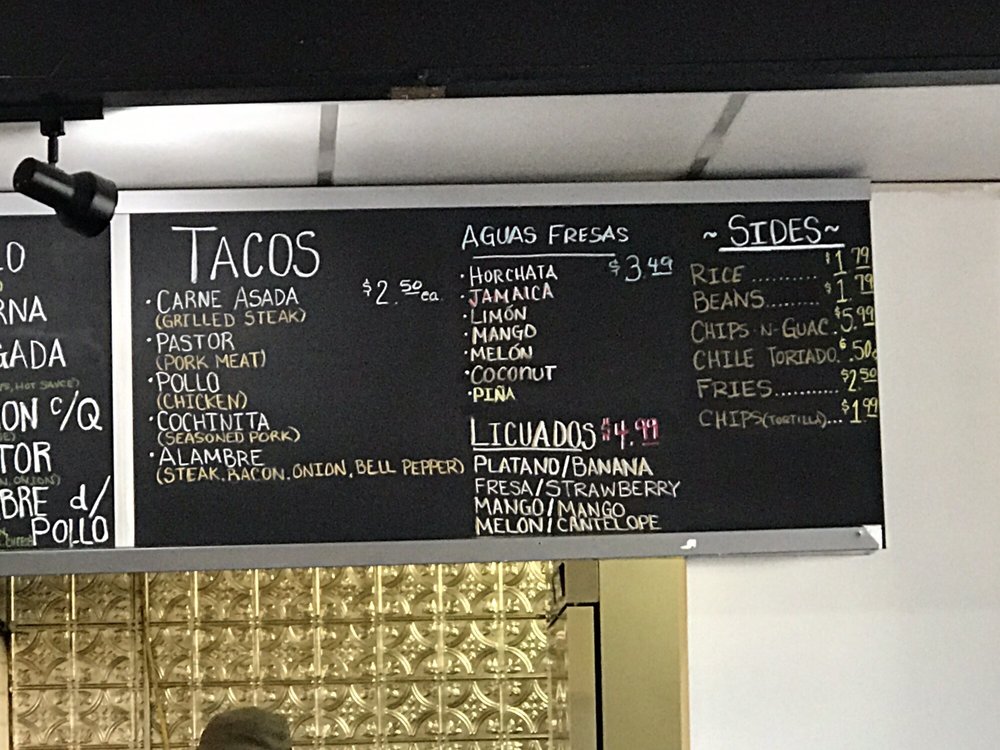 LO
RNA
GADA
HOT SAUCE)
ON C/Q
TOR
BRE d/
POLLO
TACOS
$2.50 ea.
·CARNE ASADA
(GRILLED STEAK)
·PASTOR
(PORK MEAT)
·POLLO
(CHICKEN)
·COCHINITA
(SEASONED PORK)
·ALAMBRE
(STEAK, BACON, ONION, BELL PEPPER)
AGUAS FRESAS
$3.49
·HORCHATA
·JAMAICA
·LIMÓN
·MANGO
·MELÓN
·COCONUT
·PIÑA
LICUADOS $4.99
PLATANO/BANANA
FRESA/STRAWBERRY
MANGO/MANGO
MELON/CANTELOPE
~SIDES~
RICE..........$1.79
BEANS........$1.79
CHIPS-N-GUAC.$5.99
CHILE TORIADO.$.50¢
FRIES..........$2.50
CHIPS(TORTILLA)...$1.99